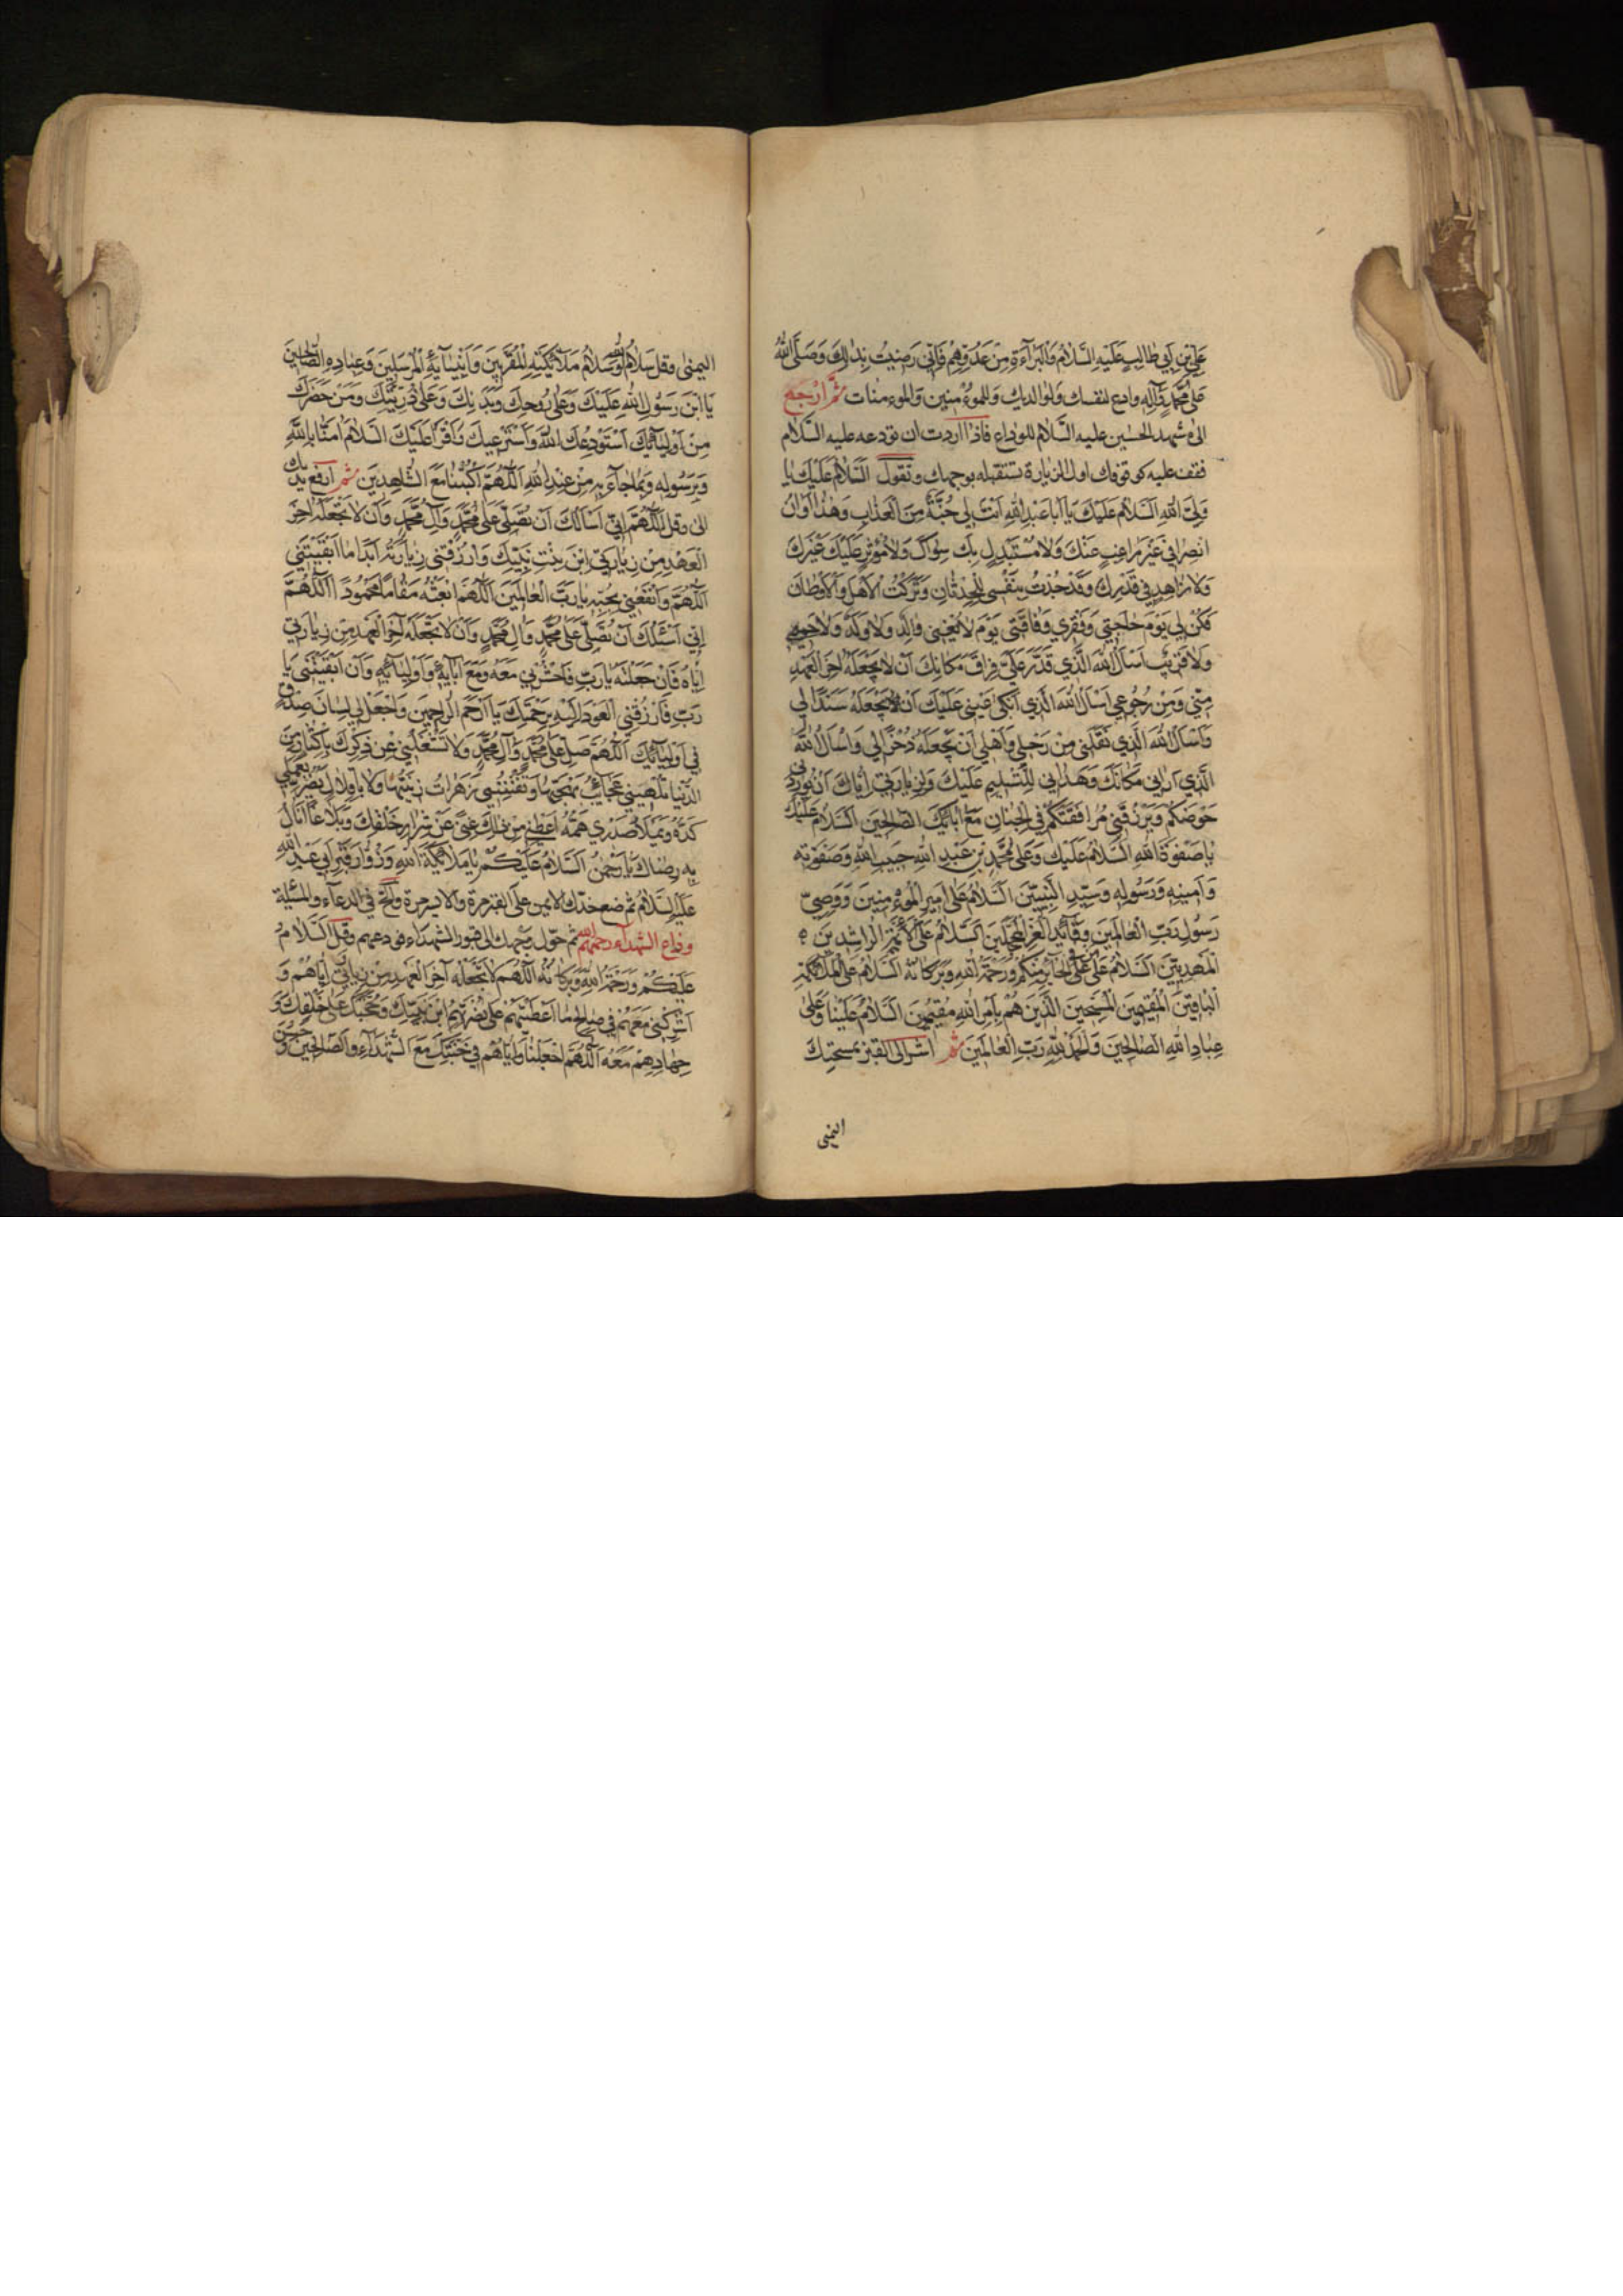 عَلِيِّ بْنِ اَبِي طَالِبٍ عَلَيْهِ السَّلَامُ وَالْبَرَاءَةِ مِنْ عَدُوِّهِمْ فَاِنِّي رَضِيتُ بِذَلِكَ وَصَلَّى اللهُ
عَلَى مُحَمَّدٍ وَآلِهِ وادع لنفسك ولوالديك وللمؤمنين والمؤمنات ثُمَّ ارْجِعْ
الى مشهد الحسين عليه السَّلَامُ للوداع فاذا اردت ان تودعه عليه السَّلَام
فقف عليه كوقوفك اول الزيارة تستقبله بوجهك وتقول اَلسَّلَامُ عَلَيْكَ يَا
وَلِيَّ اللهِ اَلسَّلَامُ عَلَيْكَ يَا اَبَا عَبْدِ اللهِ اَنْتَ لِي جُنَّةٌ مِنَ الْعَذَابِ وَهَذَا اَوَانُ
انْصِرَافِي غَيْرَ رَاغِبٍ عَنْكَ وَلَا مُسْتَبْدِلٍ بِكَ سِوَاكَ وَلَا مُؤْثِرٍ عَلَيْكَ غَيْرَكَ
وَلَا زَاهِدٍ فِي قُرْبِكَ وَقَدْ جُدْتُ بِنَفْسِي لِلْحِدْثَانِ وَتَرَكْتُ الْاَهْلَ وَالْاَوْطَانَ
فَكُنْ لِي يَوْمَ حَاجَتِي وَفَقْرِي وَفَاقَتِي يَوْمَ لَا يُغْنِي وَالِدِي وَلَا وَلَدِي وَلَا حَمِيمِي
وَلَا قَرِيبِي اَسْاَلُ اللهَ الَّذِي قَدَّرَ عَلَيَّ فِرَاقَ مَكَانِكَ اَنْ لَا يَجْعَلَهُ آخِرَ الْعَهْدِ
مِنِّي وَمِنْ رُجُوعِي اَسْاَلُ اللهَ الَّذِي اَبْكَى عَيْنِي عَلَيْكَ اَنْ يَجْعَلَهُ سَنَدًا لِي
وَاَسْاَلُ اللهَ الَّذِي نَقَلَنِي مِنْ رَحْلِي وَاَهْلِي اَنْ يَجْعَلَهُ ذُخْرًا لِي وَاَسْاَلُ اللهَ
الَّذِي اَرَانِي مَكَانَكَ وَهَدَانِي لِلتَّسْلِيمِ عَلَيْكَ وَلِزِيَارَتِي اِيَّاكَ اَنْ يُورِدَنِي
حَوْضَكُمْ وَيَرْزُقَنِي مُرَافَقَتَكُمْ فِي الْجِنَانِ مَعَ آبَائِكَ الصَّالِحِينَ اَلسَّلَامُ عَلَيْكَ
يَا صَفْوَةَ اللهِ اَلسَّلَامُ عَلَيْكَ وَعَلَى مُحَمَّدِ بْنِ عَبْدِ اللهِ حَبِيبِ اللهِ وَصَفْوَتِهِ
وَاَمِينِهِ وَرَسُولِهِ وَسَيِّدِ النَّبِيِّينَ اَلسَّلَامُ عَلَى اَمِيرِ الْمُؤْمِنِينَ وَوَصِيِّ
رَسُولِ رَبِّ الْعَالَمِينَ وَقَائِدِ الْغُرِّ الْمُحَجَّلِينَ اَلسَّلَامُ عَلَى الْاَئِمَّةِ الرَّاشِدِينَ
الْمَهْدِيِّينَ اَلسَّلَامُ عَلَى مَنْ فِي الْحَائِرِ مِنْكُمْ وَرَحْمَةُ اللهِ وَبَرَكَاتُهُ اَلسَّلَامُ عَلَى الْمَلَائِكَةِ
الْبَاقِينَ الْمُقِيمِينَ الْمُسَبِّحِينَ الَّذِينَ هُمْ بِاَمْرِ اللهِ مُقِيمُونَ اَلسَّلَامُ عَلَيْنَا وَعَلَى
عِبَادِ اللهِ الصَّالِحِينَ وَالْحَمْدُ لِلَّهِ رَبِّ الْعَالَمِينَ ثُمَّ اشر الى القبر بمسبحتك
اليمنى
اليمنى وقل سَلَامُ اللهِ وَسَلَامُ مَلَائِكَتِهِ الْمُقَرَّبِينَ وَاَنْبِيَائِهِ الْمُرْسَلِينَ وَعِبَادِهِ الصَّالِحِينَ
يَا ابْنَ رَسُولِ اللهِ عَلَيْكَ وَعَلَى رُوحِكَ وَبَدَنِكَ وَعَلَى ذُرِّيَّتِكَ وَمَنْ حَضَرَكَ
مِنْ اَوْلِيَائِكَ اَسْتَوْدِعُكَ اللهَ وَاَسْتَرْعِيكَ وَاَقْرَأُ عَلَيْكَ السَّلَامَ آمَنَّا بِاللهِ
وَبِرَسُولِهِ وَبِمَا جَاءَ بِهِ مِنْ عِنْدِ اللهِ اَللَّهُمَّ اكْتُبْنَا مَعَ الشَّاهِدِينَ ثُمَّ ارفع يدك
الى وقل اَللَّهُمَّ اِنِّي اَسْاَلُكَ اَنْ تُصَلِّيَ عَلَى مُحَمَّدٍ وَآلِ مُحَمَّدٍ وَاَنْ لَا تَجْعَلَهُ آخِرَ
الْعَهْدِ مِنْ زِيَارَتِي ابْنَ بِنْتِ نَبِيِّكَ وَارْزُقْنِي زِيَارَتَهُ اَبَدًا مَا اَبْقَيْتَنِي
اَللَّهُمَّ وَانْفَعْنِي بِحُبِّهِ يَا رَبَّ الْعَالَمِينَ اَللَّهُمَّ ابْعَثْهُ مَقَامًا مَحْمُودًا اَللَّهُمَّ
اِنِّي اَسْئَلُكَ اَنْ تُصَلِّيَ عَلَى مُحَمَّدٍ وَآلِ مُحَمَّدٍ وَاَنْ لَا تَجْعَلَهُ آخِرَ الْعَهْدِ مِنْ زِيَارَتِي
اِيَّاهُ فَاِنْ جَعَلْتَهُ يَا رَبِّ فَاحْشُرْنِي مَعَهُ وَمَعَ آبَائِهِ وَاَوْلِيَائِهِ وَاَنْ اَبْقَيْتَنِي يَا
رَبِّ فَارْزُقْنِي الْعَوْدَ اِلَيْهِ بِرَحْمَتِكَ يَا اَرْحَمَ الرَّاحِمِينَ وَاجْعَلْ لِي لِسَانَ صِدْقٍ
فِي اَوْلِيَائِكَ اَللَّهُمَّ صَلِّ عَلَى مُحَمَّدٍ وَآلِ مُحَمَّدٍ وَلَا تَشْغَلْنِي عَنْ ذِكْرِكَ بِاِكْثَارٍ مِنَ
الدُّنْيَا تُلْهِينِي عَجَائِبُ بَهْجَتِهَا وَتَفْتِنُنِي زَهَرَاتُ زِينَتِهَا وَلَا بِاِقْلَالٍ يَضُرُّ بِعَمَلِي
كَدُّهُ وَيَمْلَأُ صَدْرِي هَمُّهُ اَعْطِنِي مِنْ ذَلِكَ غِنًى عَنْ شِرَارِ خَلْقِكَ وَبَلَاغًا اَنَالُ
بِهِ رِضَاكَ يَا رَحْمَنُ اَلسَّلَامُ عَلَيْكُمْ يَا مَلَائِكَةَ اللهِ وَزُوَّارَ قَبْرِ اَبِي عَبْدِ اللهِ
عَلَيْهِ السَّلَامُ ثم ضع خدك الايمن على القبر مرة والايسر مرة والح في الدعاء والمسئلة
وداع الشهداء رحمهم الله ثم حوّل وجهك الى قبور الشهداء فودعهم وقل اَلسَّلَامُ
عَلَيْكُمْ وَرَحْمَةُ اللهِ وَبَرَكَاتُهُ اَللَّهُمَّ لَا تَجْعَلْهُ آخِرَ الْعَهْدِ مِنْ زِيَارَتِي اِيَّاهُمْ وَ
اَشْرِكْنِي مَعَهُمْ فِي صَالِحِ مَا اَعْطَيْتَهُمْ عَلَى نُصْرَتِهِمُ ابْنَ نَبِيِّكَ وَحُجَّتَكَ عَلَى خَلْقِكَ وَ
جِهَادِهِمْ مَعَهُ اَللَّهُمَّ اجْعَلْنَا وَاِيَّاهُمْ فِي جَنَّتِكَ مَعَ الشُّهَدَاءِ وَالصَّالِحِينَ وَحَسُنَ